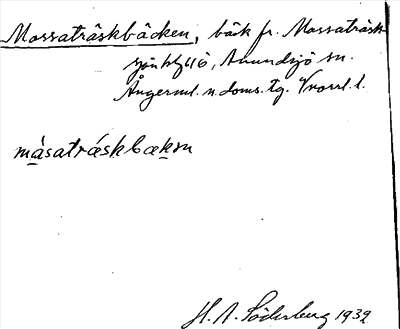 Mossaträskbäcken, bäck fr. Mossaträsk-
Anundsjö sn.
Ångerml. n. doms. tg. Vnorrl. l.
måsatræskbækən
H. A. Söderberg 1932